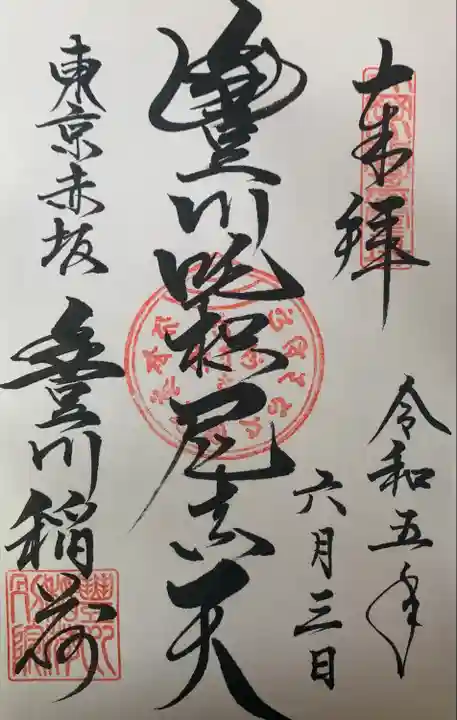 奉拜
令和五年
六月三日
豐川吒枳尼真天
東京赤坂
豊川稲荷